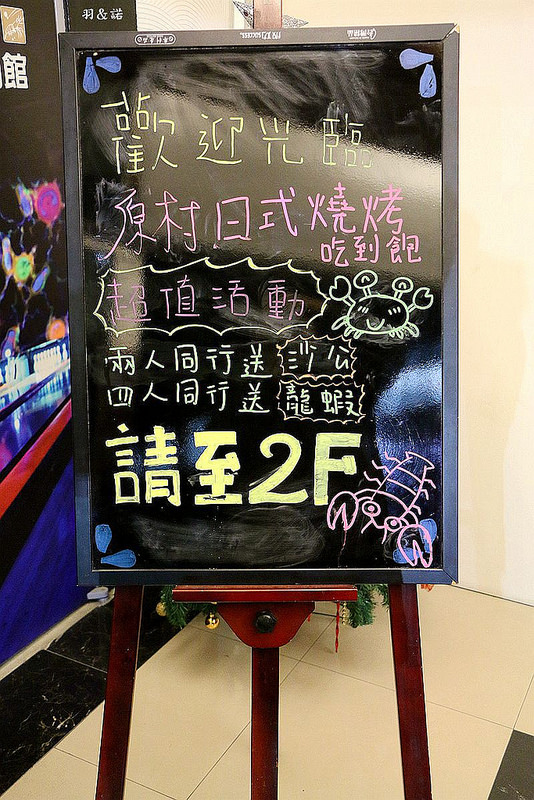 羽&諾
館
歡迎光臨
原村日式燒烤
吃到飽
超值活動
兩人同行送沙公
四人同行送龍蝦
請至2F